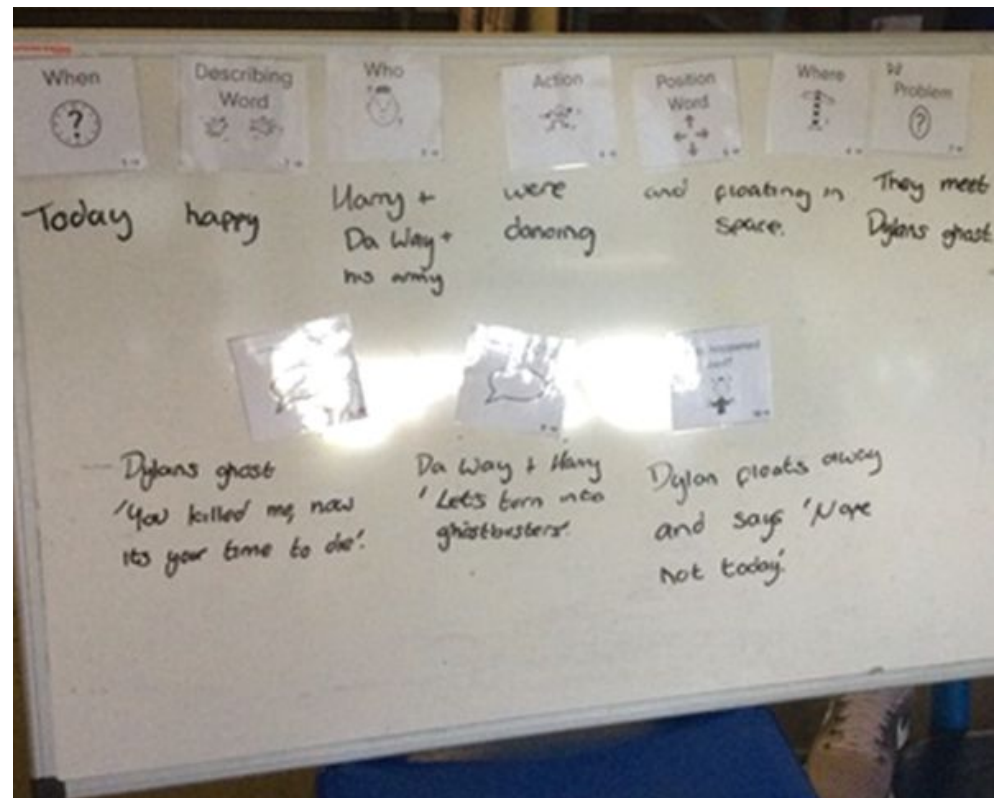 When
Describing
Word
Who
Action
Position
Word
Where
Problem
Today
happy
Harry +
Da Way +
his army
were
dancing
and
floating in
space.
They meet
Dylans ghost
happened
Dylans ghost
'You killed me, now
its your time to die'.
Da Way + Harry
'Let's turn into
ghostbusters'.
Dylan floats away
and says 'Nope
not today'.